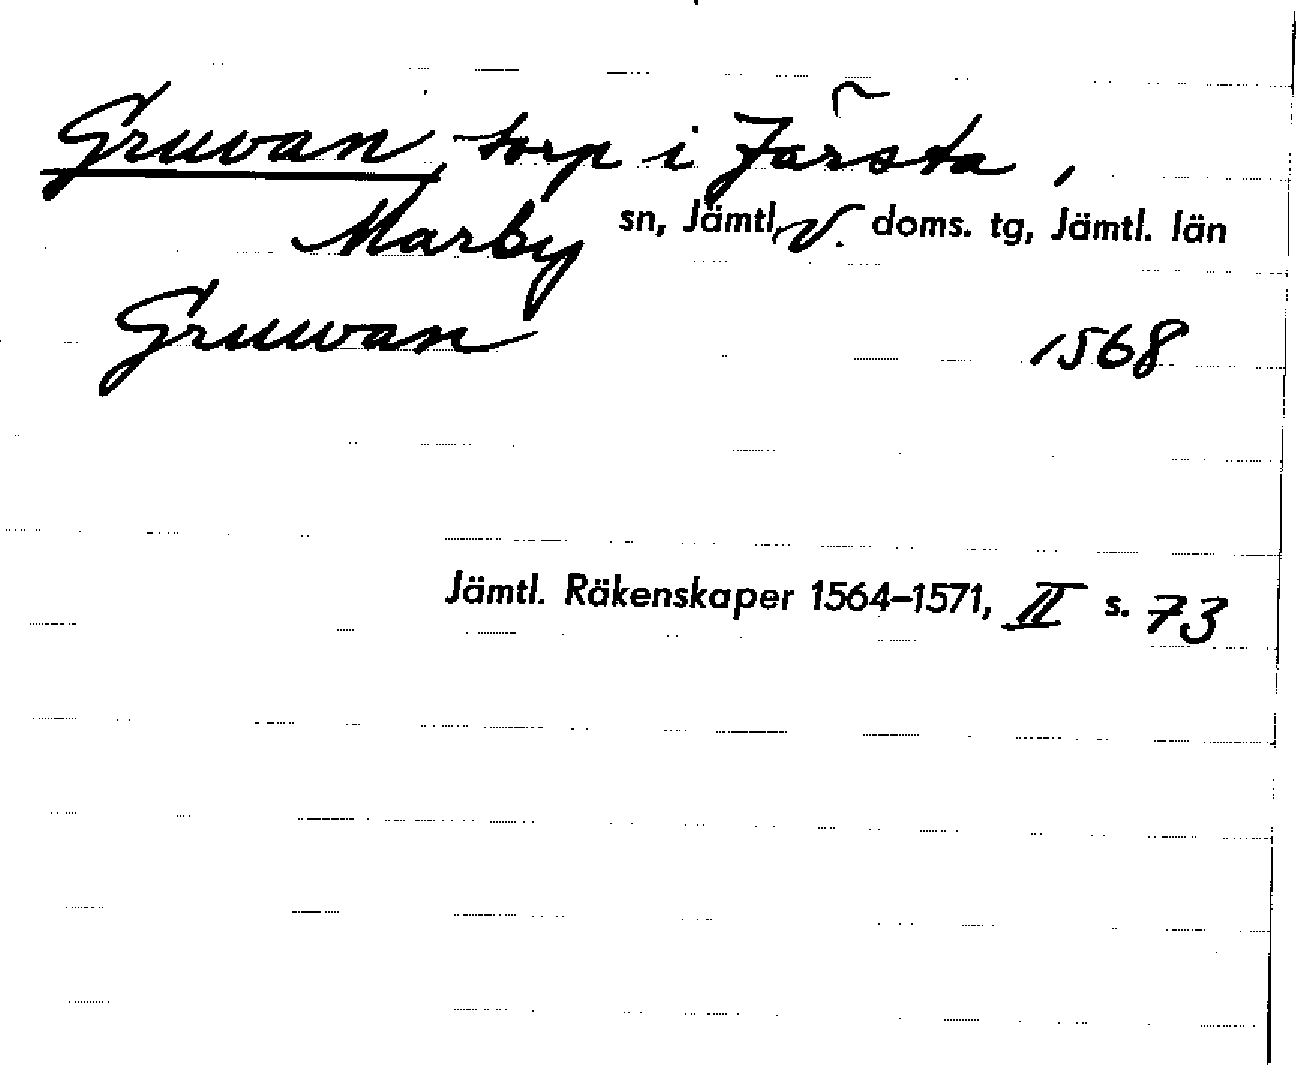 Gruvan, torp i Järsta,
Marby sn, Jämtl. V. doms. tg, Jämtl. län
Gruwan 1568
Jämtl. Räkenskaper 1564–1571, II s. 73